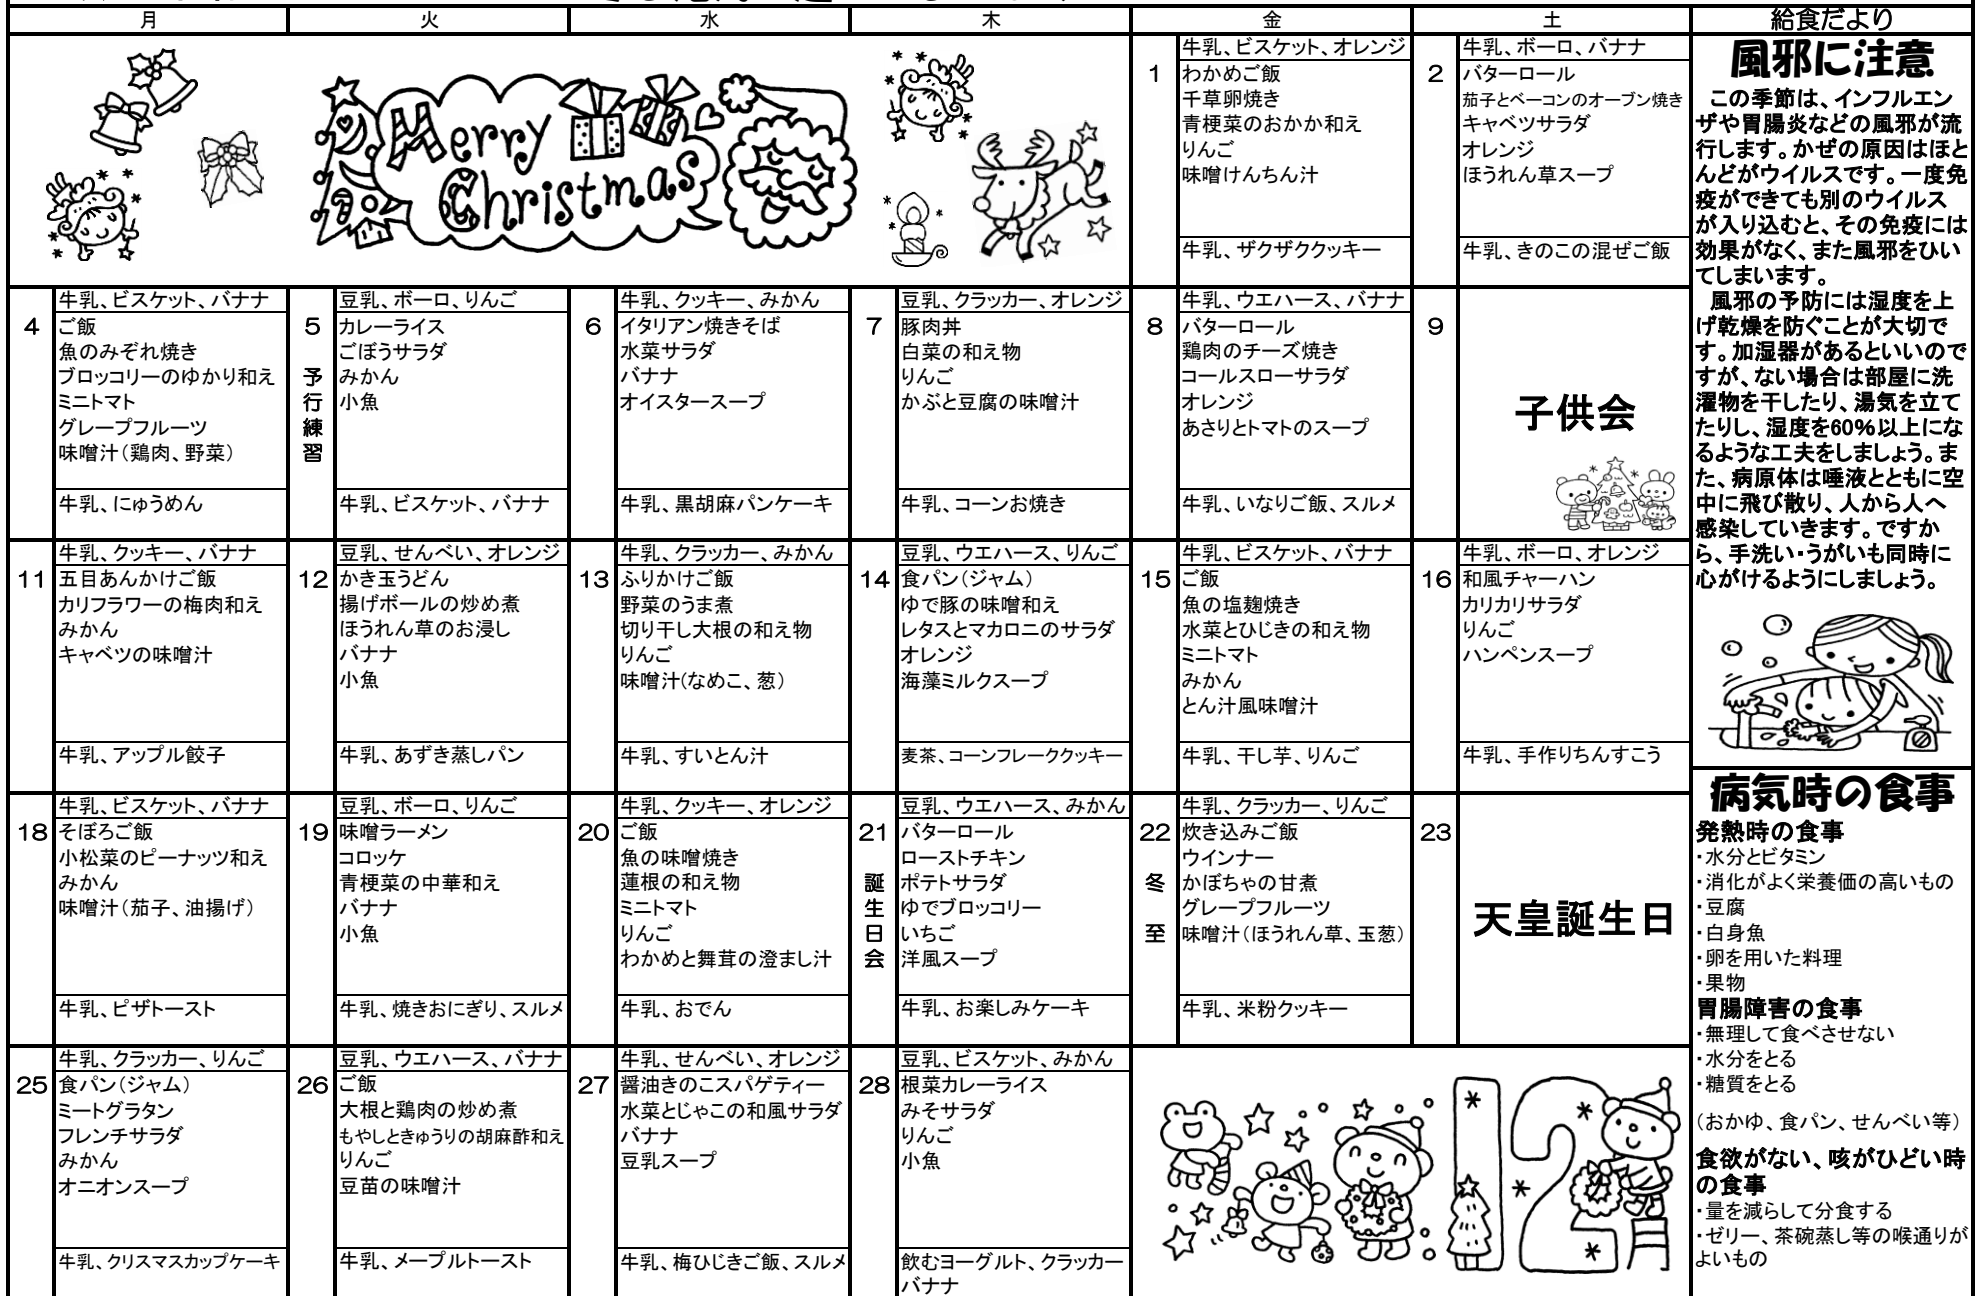 月
火
水
木
金
土
給食だより
Merry
Christmas
1
牛乳、ビスケット、オレンジ
わかめご飯
千草卵焼き
青梗菜のおかか和え
りんご
味噌けんちん汁
牛乳、ザクザククッキー
2
牛乳、ボーロ、バナナ
バターロール
茄子とベーコンのオーブン焼き
キャベツサラダ
オレンジ
ほうれん草スープ
牛乳、きのこの混ぜご飯
4
牛乳、ビスケット、バナナ
ご飯
魚のみぞれ焼き
ブロッコリーのゆかり和え
ミニトマト
グレープフルーツ
味噌汁(鶏肉、野菜)
牛乳、にゅうめん
5
予行練習
豆乳、ボーロ、りんご
カレーライス
ごぼうサラダ
みかん
小魚
牛乳、ビスケット、バナナ
6
牛乳、クッキー、みかん
イタリアン焼きそば
水菜サラダ
バナナ
オイスタースープ
牛乳、黒胡麻パンケーキ
7
豆乳、クラッカー、オレンジ
豚肉丼
白菜の和え物
りんご
かぶと豆腐の味噌汁
牛乳、コーンお焼き
8
牛乳、ウエハース、バナナ
バターロール
鶏肉のチーズ焼き
コールスローサラダ
オレンジ
あさりとトマトのスープ
牛乳、いなりご飯、スルメ
9
子供会
11
牛乳、クッキー、バナナ
五目あんかけご飯
カリフラワーの梅肉和え
みかん
キャベツの味噌汁
牛乳、アップル餃子
12
豆乳、せんべい、オレンジ
かき玉うどん
揚げボールの炒め煮
ほうれん草のお浸し
バナナ
小魚
牛乳、あずき蒸しパン
13
牛乳、クラッカー、みかん
ふりかけご飯
野菜のうま煮
切り干し大根の和え物
りんご
味噌汁(なめこ、葱)
牛乳、すいとん汁
14
豆乳、ウエハース、りんご
食パン(ジャム)
ゆで豚の味噌和え
レタスとマカロニのサラダ
オレンジ
海藻ミルクスープ
麦茶、コーンフレーククッキー
15
牛乳、ビスケット、バナナ
ご飯
魚の塩麹焼き
水菜とひじきの和え物
ミニトマト
みかん
とん汁風味噌汁
牛乳、干し芋、りんご
16
牛乳、ボーロ、オレンジ
和風チャーハン
カリカリサラダ
りんご
ハンペンスープ
牛乳、手作りちんすこう
18
牛乳、ビスケット、バナナ
そぼろご飯
小松菜のピーナッツ和え
みかん
味噌汁(茄子、油揚げ)
牛乳、ピザトースト
19
豆乳、ボーロ、りんご
味噌ラーメン
コロッケ
青梗菜の中華和え
バナナ
小魚
牛乳、焼きおにぎり、スルメ
20
牛乳、クッキー、オレンジ
ご飯
魚の味噌焼き
蓮根の和え物
ミニトマト
りんご
わかめと舞茸の澄まし汁
牛乳、おでん
21
誕生日会
豆乳、ウエハース、みかん
バターロール
ローストチキン
ポテトサラダ
ゆでブロッコリー
いちご
洋風スープ
牛乳、お楽しみケーキ
22
冬至
牛乳、クラッカー、りんご
炊き込みご飯
ウインナー
かぼちゃの甘煮
グレープフルーツ
味噌汁(ほうれん草、玉葱)
牛乳、米粉クッキー
23
天皇誕生日
25
牛乳、クラッカー、りんご
食パン(ジャム)
ミートグラタン
フレンチサラダ
みかん
オニオンスープ
牛乳、クリスマスカップケーキ
26
豆乳、ウエハース、バナナ
ご飯
大根と鶏肉の炒め煮
もやしときゅうりの胡麻酢和え
りんご
豆苗の味噌汁
牛乳、メープルトースト
27
牛乳、せんべい、オレンジ
醤油きのこスパゲティー
水菜とじゃこの和風サラダ
バナナ
豆乳スープ
牛乳、梅ひじきご飯、スルメ
28
豆乳、ビスケット、みかん
根菜カレーライス
みそサラダ
りんご
小魚
飲むヨーグルト、クラッカー
バナナ
12
風邪に注意
この季節は、インフルエン
ザや胃腸炎などの風邪が流
行します。かぜの原因はほと
んどがウイルスです。一度免
疫ができても別のウイルス
が入り込むと、その免疫には
効果がなく、また風邪をひい
てしまいます。
風邪の予防には湿度を上
げ乾燥を防ぐことが大切で
す。加湿器があるといいので
すが、ない場合は部屋に洗
濯物を干したり、湯気を立て
たりし、湿度を60%以上にな
るような工夫をしましょう。ま
た、病原体は唾液とともに空
中に飛び散り、人から人へ
感染していきます。ですか
ら、手洗い・うがいも同時に
心がけるようにしましょう。
病気時の食事
発熱時の食事
・水分とビタミン
・消化がよく栄養価の高いもの
・豆腐
・白身魚
・卵を用いた料理
・果物
胃腸障害の食事
・無理して食べさせない
・水分をとる
・糖質をとる
(おかゆ、食パン、せんべい等)
食欲がない、咳がひどい時
の食事
・量を減らして分食する
・ゼリー、茶碗蒸し等の喉通りが
よいもの